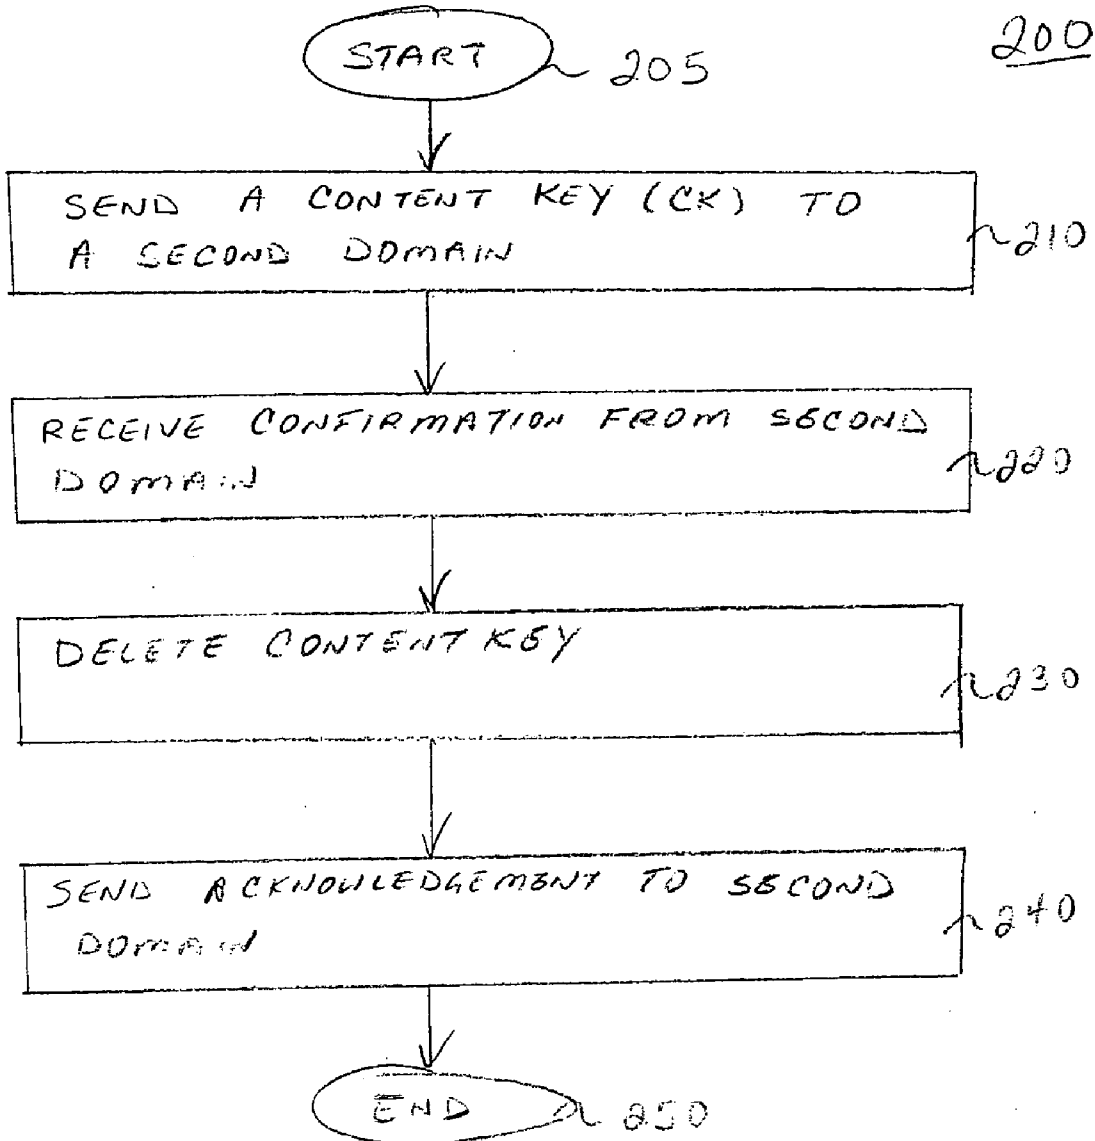 200
START 205
SEND A CONTENT KEY (CK) TO
A SECOND DOMAIN 210
RECEIVE CONFIRMATION FROM SECOND
DOMAIN 220
DELETE CONTENT KEY
230
SEND ACKNOWLEDGEMENT TO SECOND
DOMAIN 240
END 250